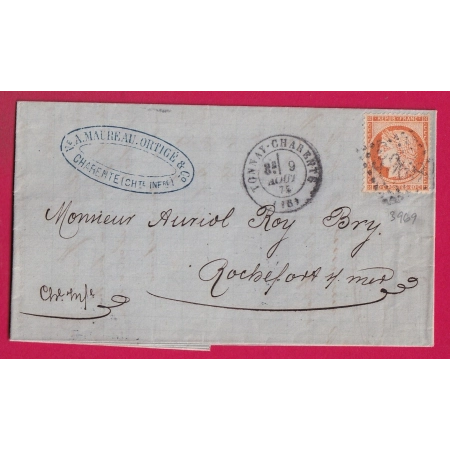 A. MAUREAU. ORTIGÉ & Co
CHARENTE (CHTE INFRE)
TONNAY-CHARENTE
9
AOUT
75
(16)
REPUB. FRANC.
3969
Monsieur Auriol Roy Bry.
Rochefort s/ mer
Chte Infre